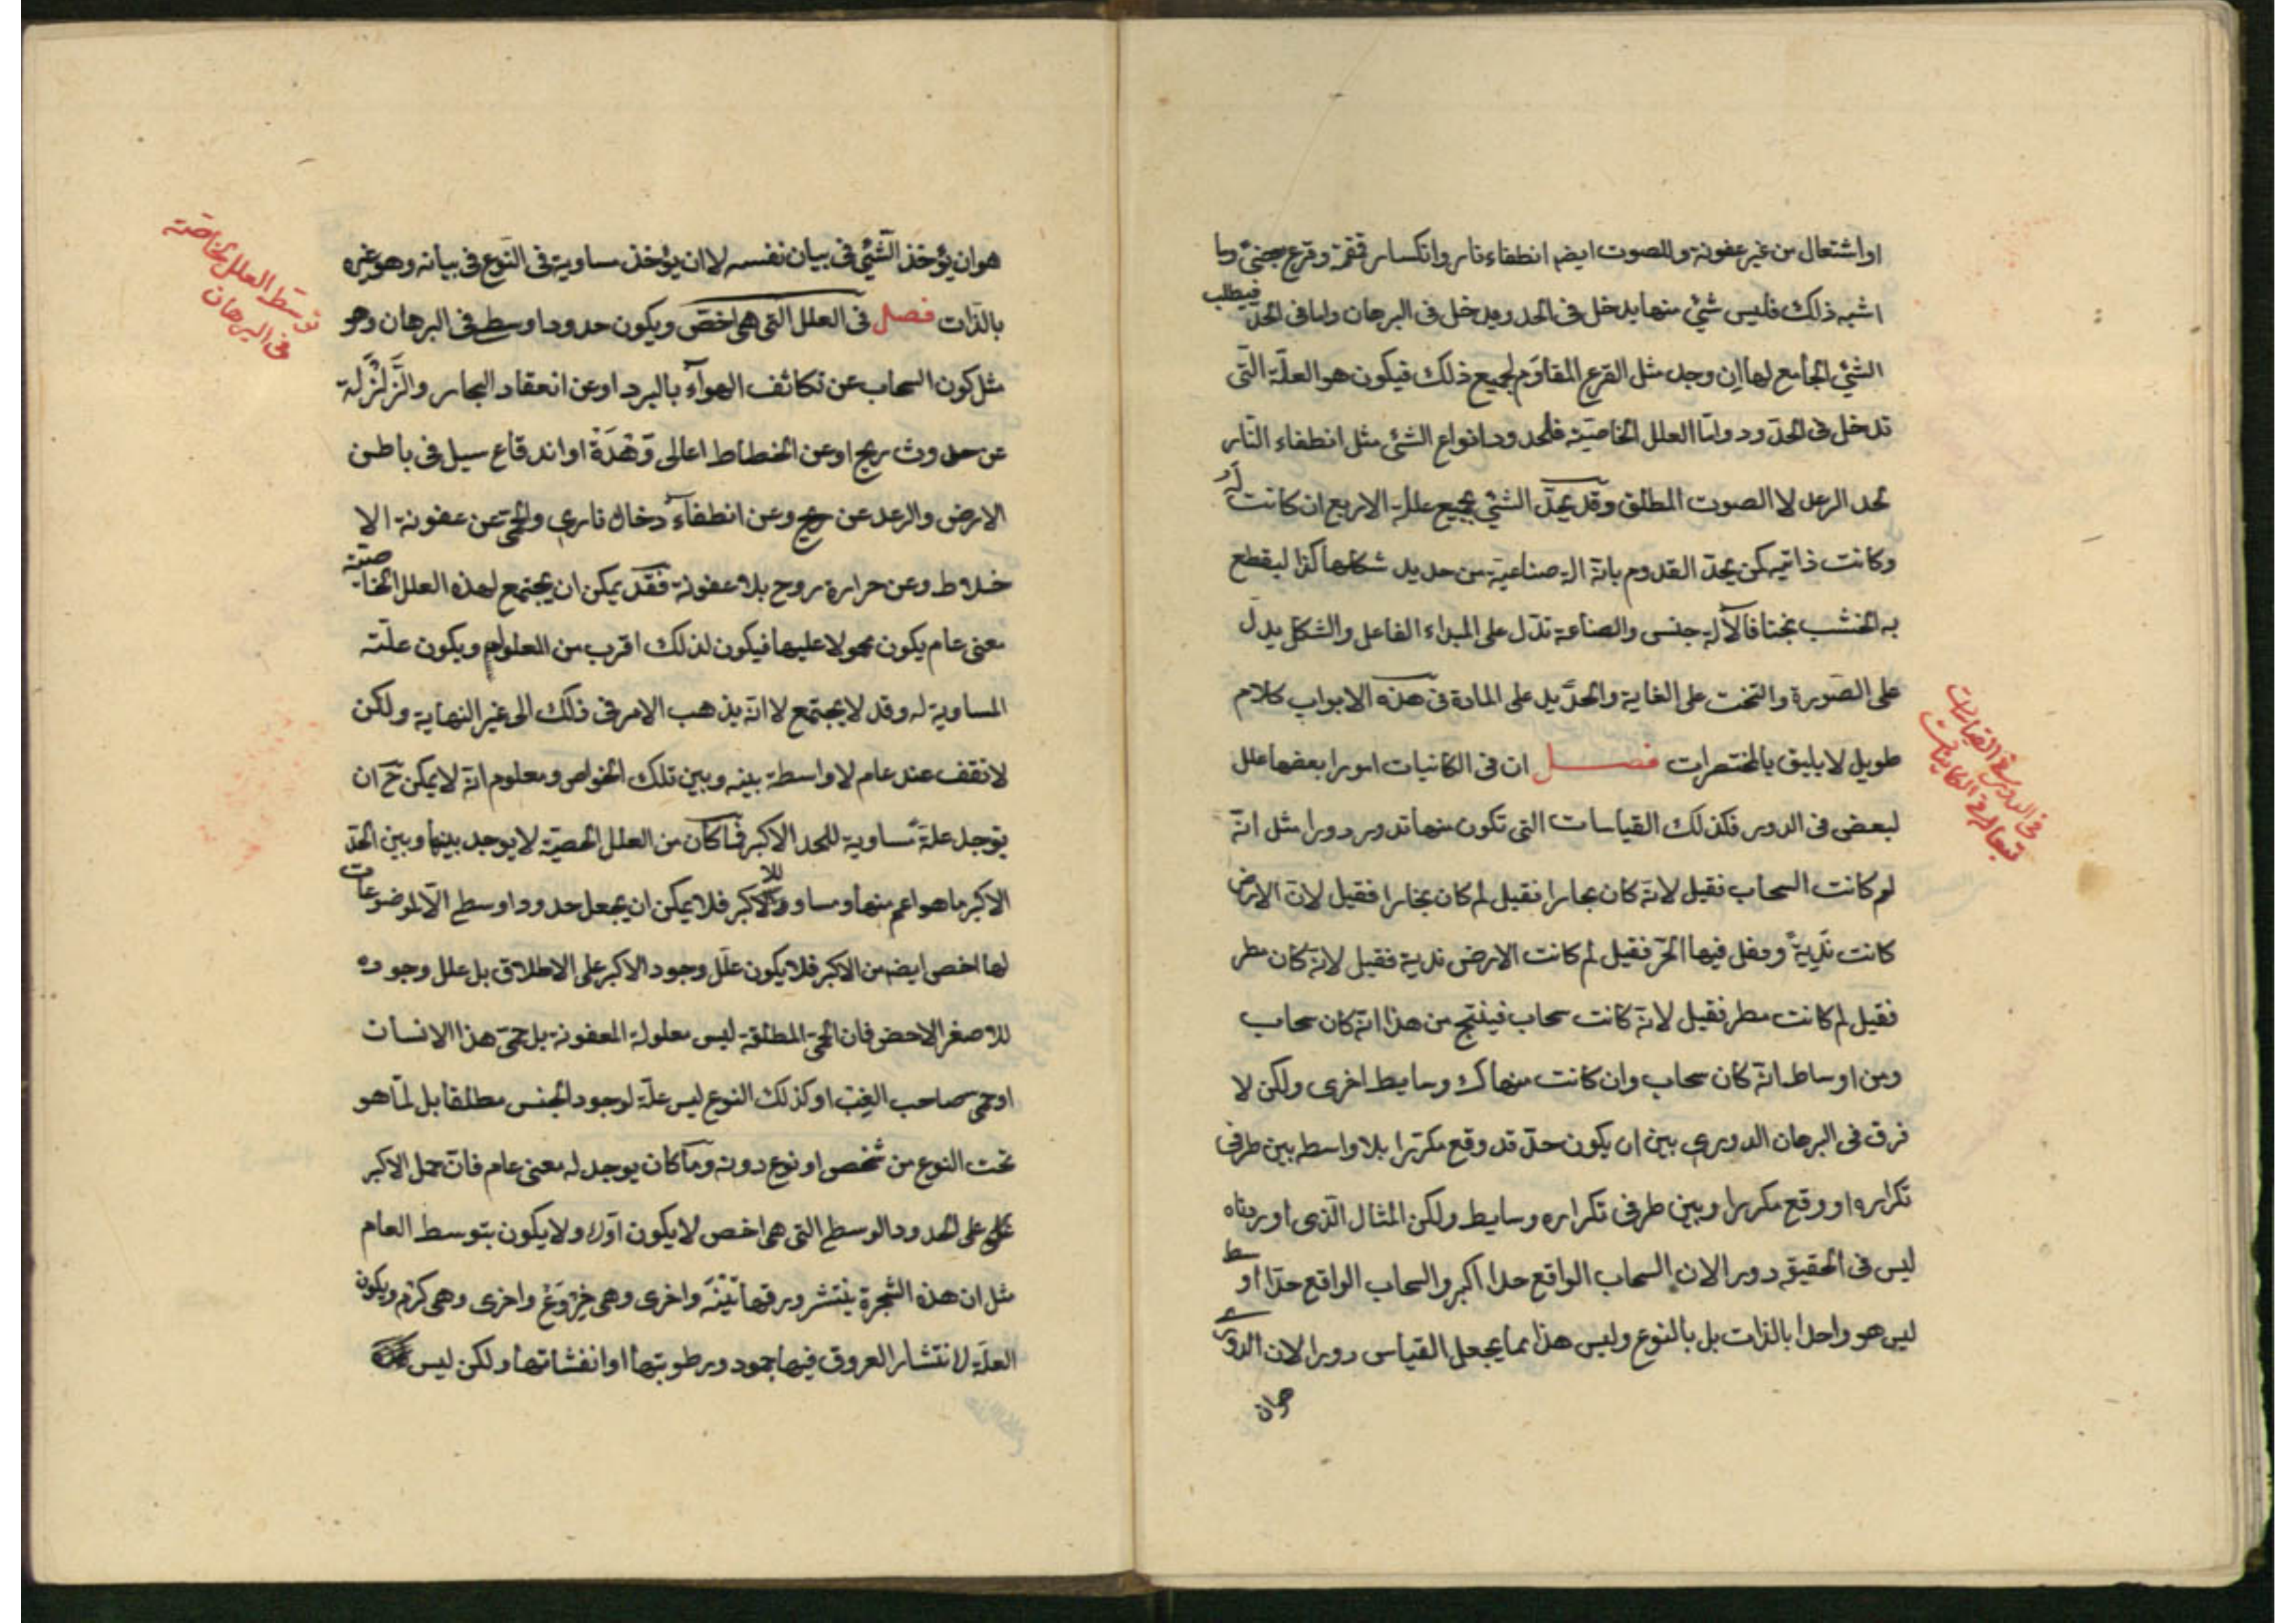 او اشتعال من غير عفونة وللصوت ايضم انطفاء نار وانكسار قمقمة وقرع جنىّ وما
اشبه ذلك فليس شئ منها يدخل فى الحد ويدخل فى البرهان واما فى الحدّ فيطلب
الشئ الجامع لها ان وجد مثل القرع المقاوَم لجميع ذلك فيكون هو العلّة التّى
تدخل فى الحدّ ود وامّا العلل الخاصيّة فلحدود انواع الشئ مثل انطفاء النّار
لحد الرعد لا الصوت المطلق وقد يحدّ الشئ بجميع علله الاربع ان كانت لَه
وكانت ذاتيه كمن يحدّ القدوم بانّه الة صناعيّة من حديد شكلها كذا ليقطع
به الخشب نجتا فالآلة جنس والصناعة تدّل على المبداء الفاعل والشكل يدلّ
على الصّورة والنحت على الغاية والحديد على المادة فى هذه الابواب كلام
طويل لا يليق بالمختصرات فصل ان فى الكائنات امورا بعضها علل
لبعض فى الدور فكذلك القياسات التى تكون منها تدور دورا مثل انّه
لم كانت السحاب فقيل لانّه كان بخارا فقيل لم كان بخارا فقيل لانّ الارض
كانت نَدِيةً وفعل فيها الحرّ فقيل لم كانت الارض ندية فقيل لانّه كان مطر
فقيل لم كانت مطر فقيل لانّه كانت سحاب فينتج من هذا انّه كان سحاب
ومن اوساط انّه كان سحاب وان كانت منهاك وسايط اخرى ولكن لا
فرق فى البرهان الدورى بين ان يكون حدّ قد وقع مكرّرا بلا واسطه بين طرفى
تكراره او وقع مكررا وبين طرفى تكراره وسايط ولكن المثال الّذى اوردناه
ليس فى الحقيقه دورا لان السحاب الواقع حدا اكبر والسحاب الواقع حدّا اوسط
ليس هو واحدا بالذات بل بالنوع وليس هذا بما يجعل القياس دورا لان الدورى
هوان
فى الدور فى القياسات
تبعا له فى الكاينات
هو ان يؤخذ الشّئ فى بيان نفسه لا ان يؤخذ مساويه فى النّوع فى بيانه وهو غيره
بالذّات فصل فى العلل التى هى اخصّ ويكون حدودا وسطى فى البرهان وهو
مثل كون السحاب عن تكاثف الهوآء بالبرد او عن انعقاد البخار والزَّلزَلة
عن حدوث ريح او عن انحطاط اعالى وَهْدَة او اندفاع سيل فى باطن
الارض والرعد عن ريح وعن انطفآء دخان نارى والحمّى عن عفونة الا
خلاط وعن حرارة روح بلا عفونة فقد يمكن ان يجتمع لهذه العلل الخاصيّة
معنى عام يكون محمولا عليها فيكون لذلك اقرب من المعلول ويكون علّته
المساوية له وقد لا يجتمع لا انّه يذهب الامر فى ذلك الى غير النهاية ولكن
لا نقف عند عام لا واسطة بينه وبين تلك الخواص ومعلوم انّه لا يمكن ح ان
يوجد علة مُساوية للحد الاكبر فما كان من العلل الخصيّة لا يوجد بينها وبين الحدّ
الاكبر ما هو اعم منها ومساو للاكبر فلا يمكن ان يجعل حدودا وسطى الّا لموضوعات
لها اخصّ ايضم من الاكبر فلا يكون علل وجود الاكبر على الاطلاق بل علل وجوده
للاصغر الاخص فان الحمّى المطلقة ليس معلولة العفونة بل حمّى هذا الانسان
او حمّى صاحب الغِبّ او كذلك النوع ليس علّة لوجود الجنس مطلقا بل لما هو
تحت النوع من شخص او نوع دونه وما كان يوجد له معنى عام فانّ حمل الاكبر
على الحدود الوسطى التى هى اخص لا يكون اولا ولا يكون بتوسط العام
مثل ان هذه الشجرة ينتشر ورقها تينة واخرى وهى خِرْوَع واخرى وهى كَرْم ويكون
العلّة لانتشار العروق فيها جمود رطوبتها او انفشاتها ولكن ليس
توسّط العلل الخاصّة
فى البرهان